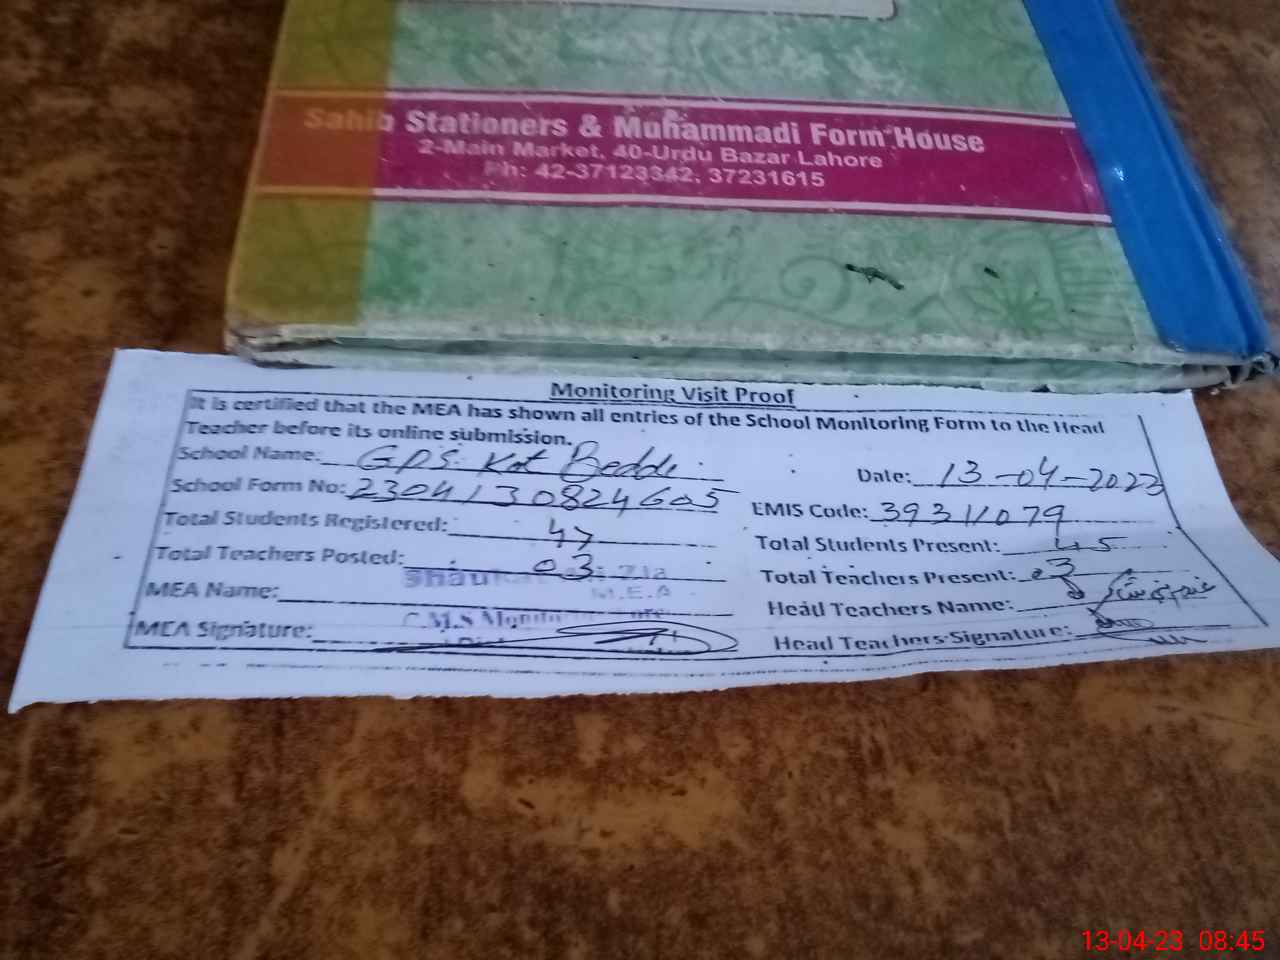 Sahib Stationers & Muhammadi Form House
2-Main Market, 40-Urdu Bazar Lahore
Ph: 42-37123342, 37231615
Monitoring Visit Proof
It is certified that the MEA has shown all entries of the School Monitoring Form to the Head
Teacher before its online submission.
School Name: GPS. Kot Date: 13-04-2023
School Form No: 2304130824605 EMIS Code: 39311079
Total Students Registered: 47 Total Students Present: 45
Total Teachers Posted: 03 Total Teachers Present: 03
MEA Name: Zia M.E.A Head Teachers Name:
MEA Signature: Head Teachers Signature:
13-04-23 08:45